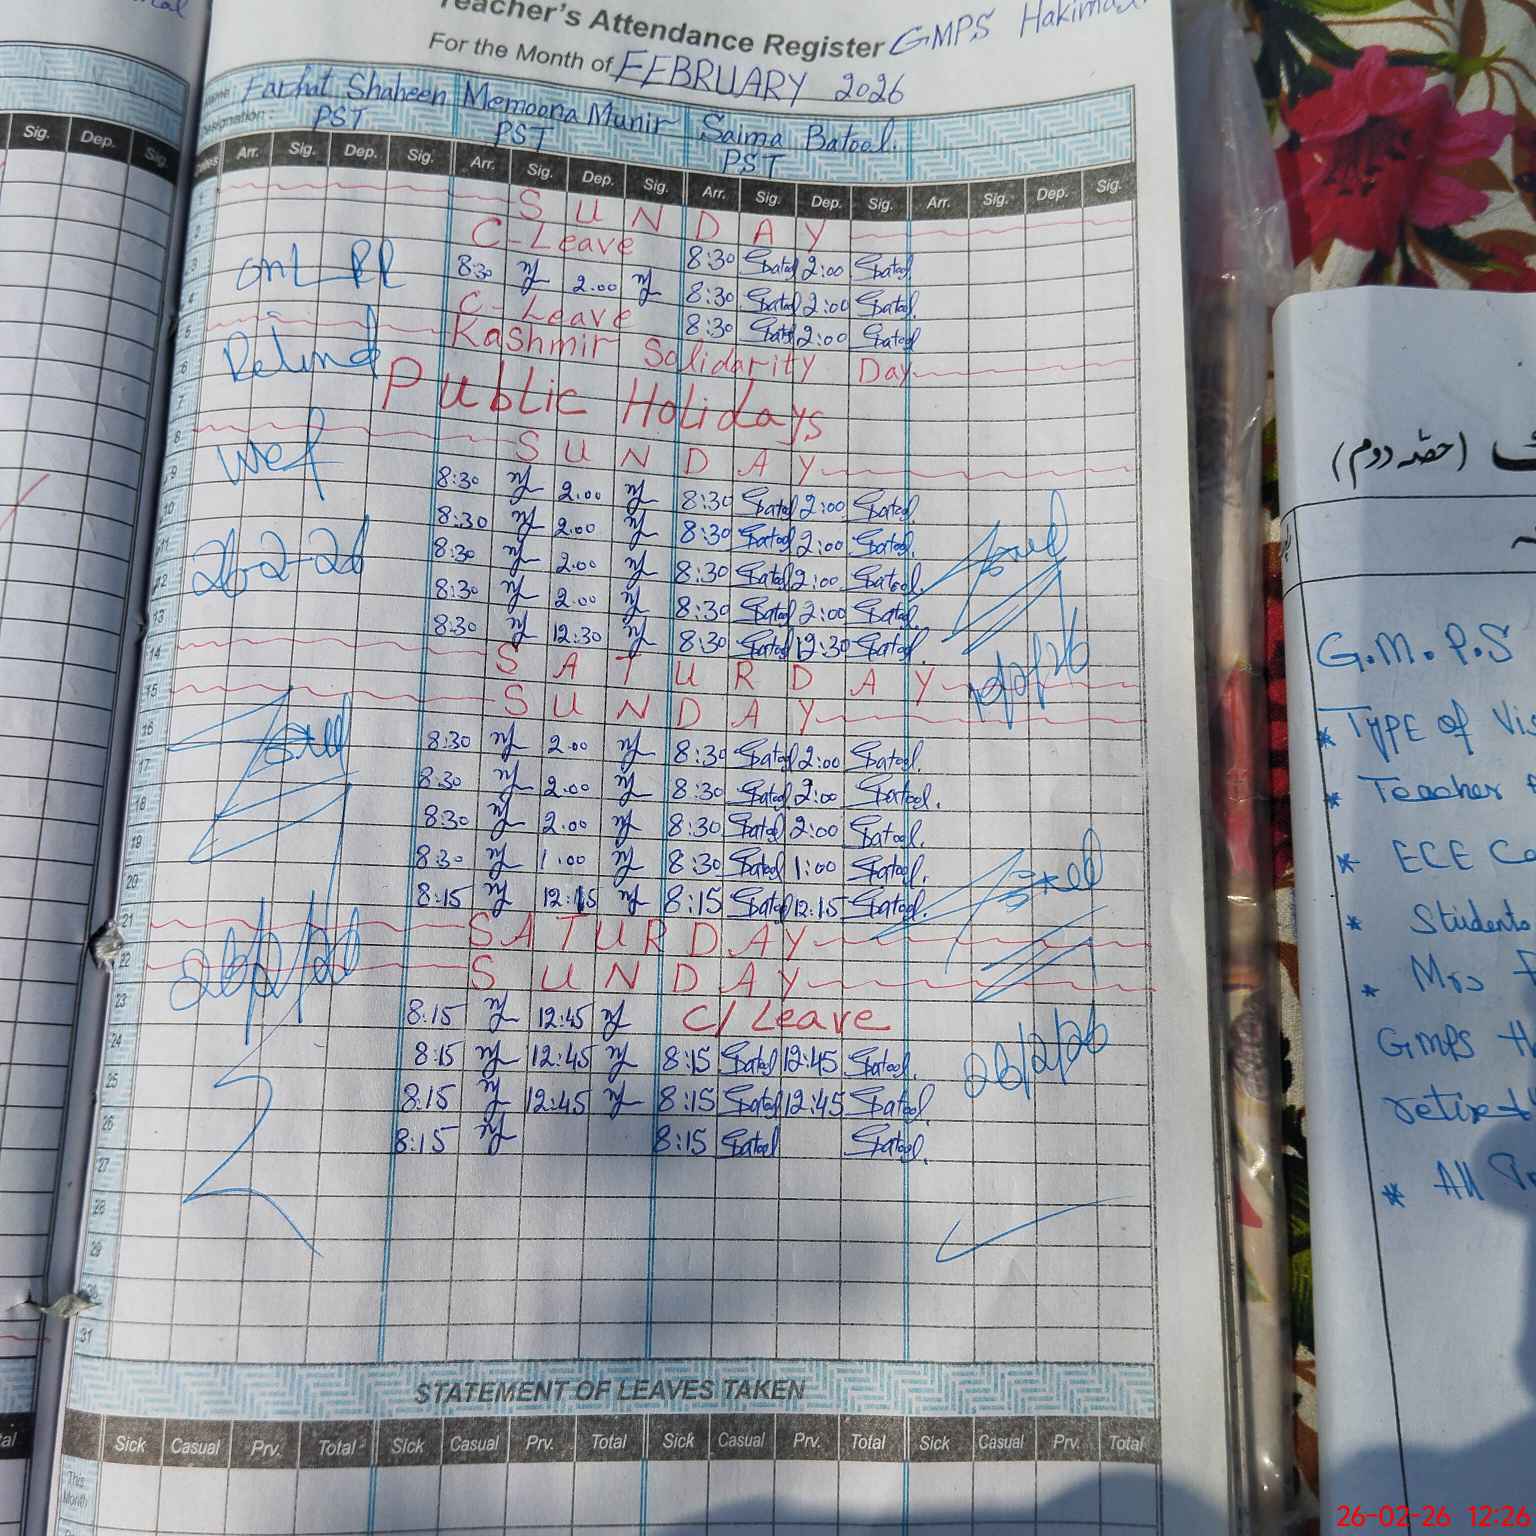 Teacher's Attendance Register GMPS
For the Month of FEBRUARY 2026
Farhat Shaheen Memoona Munir Saima Batool.
Designation: PST PST PST
Sig. Dep. Sig. Dates Arr. Sig. Dep. Sig. Arr. Sig. Dep. Sig. Arr. Sig. Dep. Sig. Arr. Sig. Dep. Sig.
1 SUNDAY
2 C-Leave 8:30 Sbatool 2:00 Sbatool.
3 8:30 2.00 8:30 Sbatool 2:00 Sbatool.
4 C-Leave 8:30 Sbatool 2:00 Sbatool
5 Kashmir Solidarity Day
6
7 Public Holidays
8 SUNDAY
9 8:30 2.00 8:30 Sbatool 2:00 Sbatool.
10 8:30 2.00 8:30 Sbatool 2:00 Sbatool.
11 8:30 2.00 8:30 Sbatool 2:00 Sbatool.
12 8:30 2.00 8:30 Sbatool 2:00 Sbatool.
13 8:30 12.30 8:30 Sbatool 12:30 Sbatool.
14 SATURDAY
15 SUNDAY
16 8:30 2.00 8:30 Sbatool 2:00 Sbatool.
17 8:30 2.00 8:30 Sbatool 2:00 Sbatool.
18 8:30 2.00 8:30 Sbatool 2:00 Sbatool.
19 8:30 1:00 8:30 Sbatool 1:00 Sbatool.
20 8:15 12:15 8:15 Sbatool 12:15 Sbatool.
21 SATURDAY
22 SUNDAY
23 8:15 12:45 C/Leave
24 8:15 12:45 8:15 Sbatool 12:45 Sbatool.
25 8:15 12:45 8:15 Sbatool 12:45 Sbatool.
26 8:15 8:15 Sbatool Sbatool.
27
28
29
31
wef
26/2/26
26/2/26
STATEMENT OF LEAVES TAKEN
Sick Casual Prv. Total Sick Casual Prv. Total Sick Casual Prv. Total Sick Casual Prv. Total
This Month
(حصہ دوم)
G.M.P.S
* Type of
* Teacher
* ECE
* Students
* Mrs
GMPS
retired
* All
26-02-26 12:26